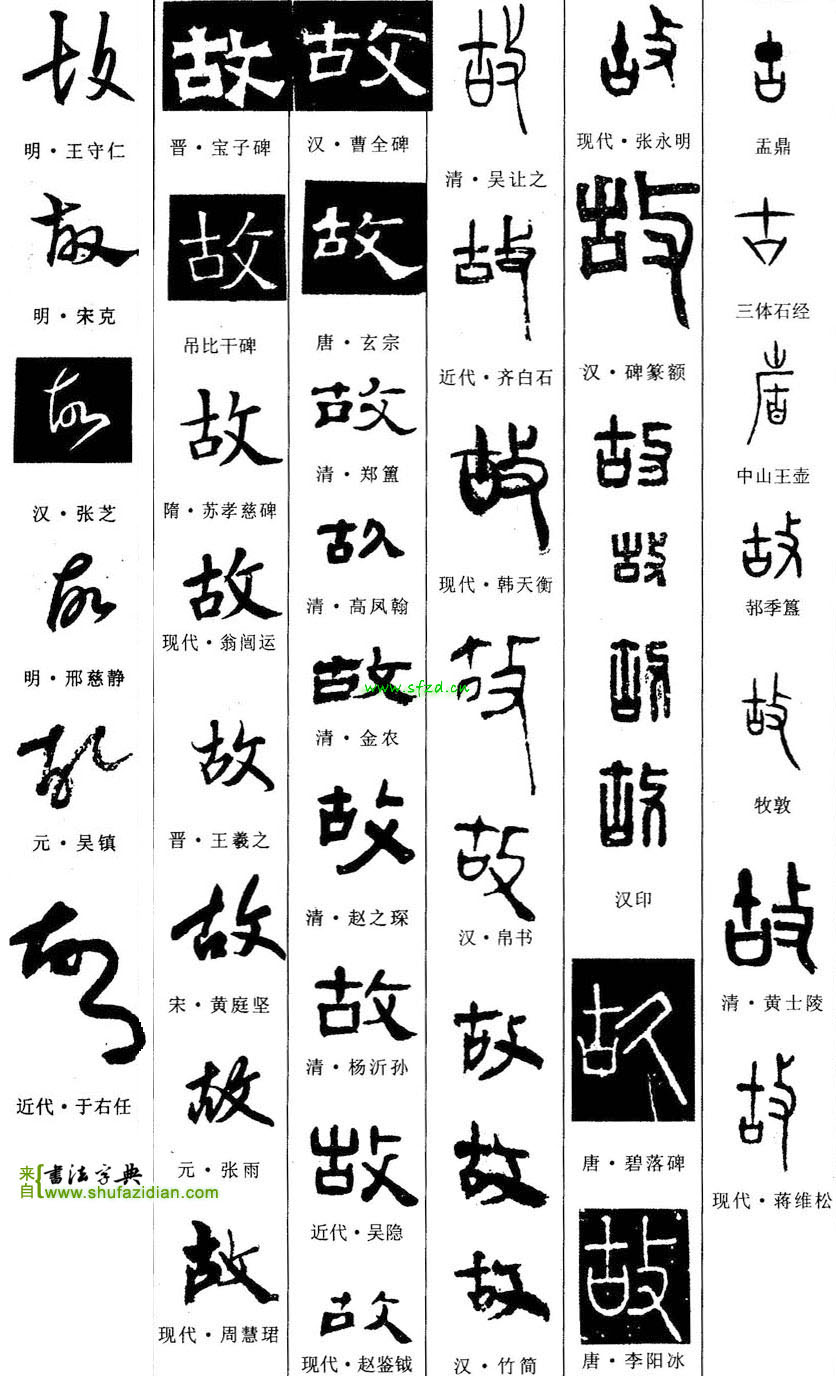 故
明·王守仁
故
明·宋克
故
汉·张芝
故
明·邢慈静
故
元·吴镇
故
近代·于右任
来自{書法字典
www.shufazidian.com
故
晋·宝子碑
故
吊比干碑
故
隋·苏孝慈碑
故
现代·翁闿运
故
晋·王羲之
故
宋·黄庭坚
故
元·张雨
故
现代·周慧珺
故
汉·曹全碑
故
唐·玄宗
故
清·郑簠
故
清·高凤翰
故
www.sfzd.cn
清·金农
故
清·赵之琛
故
清·杨沂孙
故
近代·吴隐
故
现代·赵鉴钺
故
清·吴让之
故
近代·齐白石
故
现代·韩天衡
故
故
汉·帛书
故
故
故
汉·竹简
故
现代·张永明
故
汉·碑篆额
故
故
故
故
汉印
故
唐·碧落碑
故
唐·李阳冰
古
盂鼎
古
三体石经
中山王壶
故
郜季簋
故
牧敦
故
清·黄士陵
故
现代·蒋维松